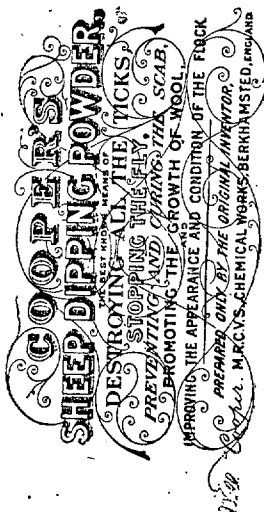 COOPER'S
SHEEP DIPPING POWDER,
THE BEST KNOWN MEANS OF
DESTROYING ALL THE TICKS,
STOPPING THE FLY,
PREVENTING AND CURING THE SCAB,
PROMOTING THE GROWTH OF WOOL,
AND
IMPROVING THE APPEARANCE AND CONDITION OF THE FLOCK
PREPARED ONLY BY THE ORIGINAL INVENTOR,
Cooper. M.R.C.V.S. CHEMICAL WORKS BERKHAMSTED, ENGLAND